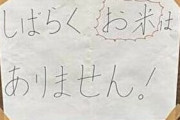 しばらく お米は
ありません!